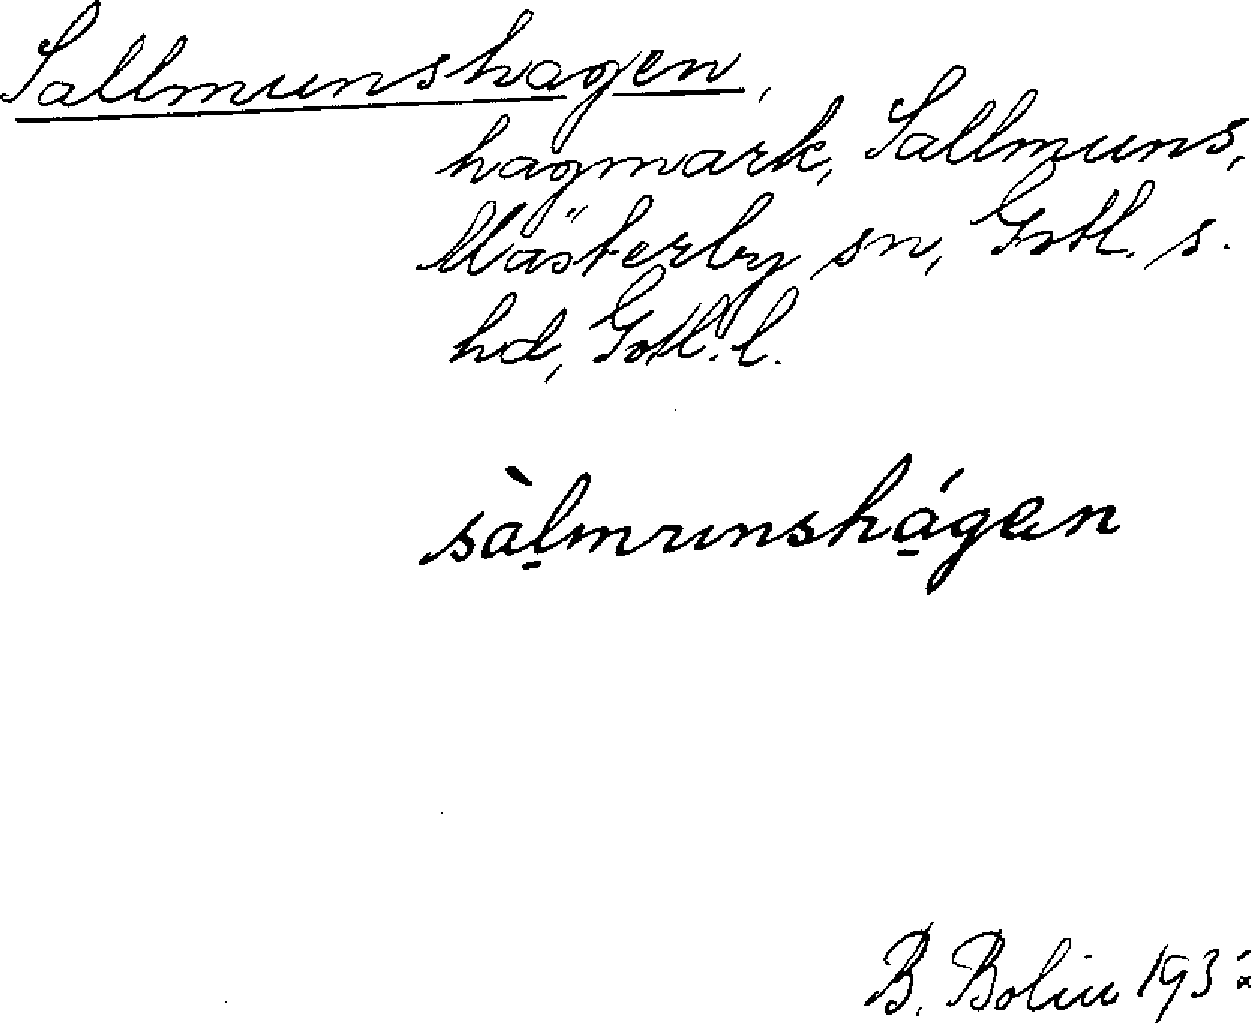 Sallmunshagen,
hagmark, Sallmuns,
Västerby sn, Gotl. s.
hd, Gotl. l.
sàlmunshágen
B. Bolin